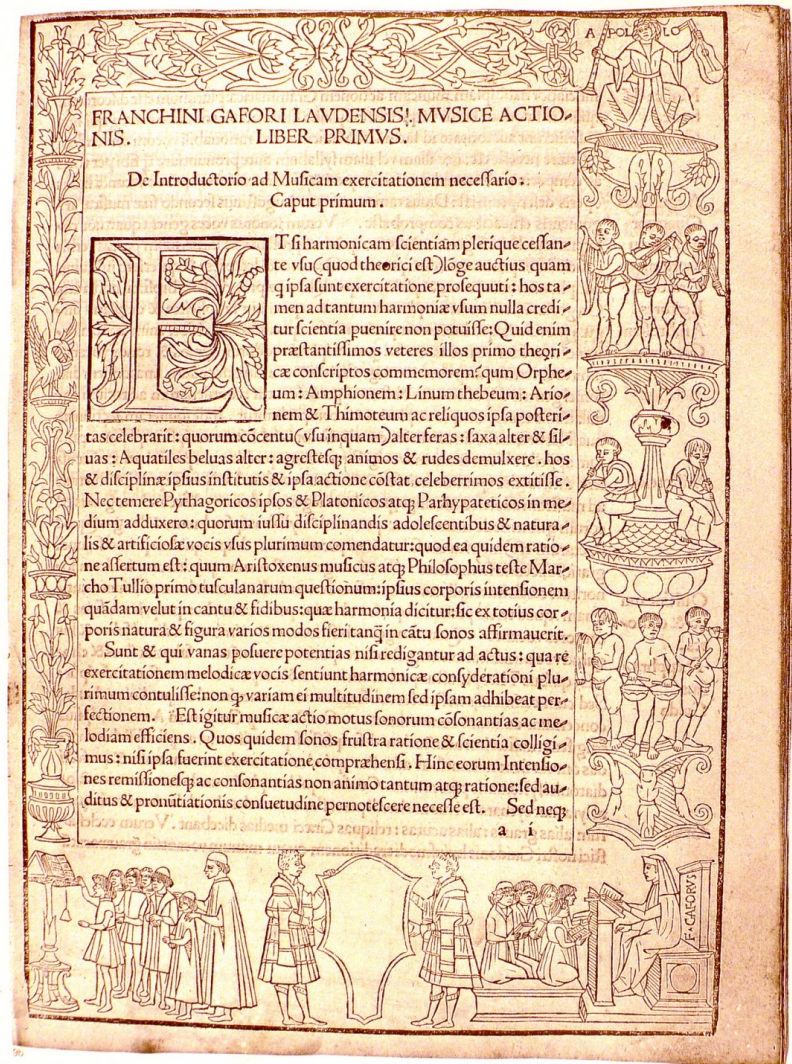 A POL LO
FRANCHINI GAFORI LAVDENSIS!. MVSICE ACTIO-
NIS. LIBER PRIMVS.
De Introductorio ad Musicam exercitationem necessario:
Caput primum.
ETsi harmonicam scientiam plerique cessan-
te vsu (quod theorici est) lōge auctius quam
q ipsa sunt exercitatione prosequuti: hos ta-
men ad tantum harmoniæ vsum nulla credi-
tur scientia puenire non potuisse: Quid enim
præstantissimos veteres illos primo theori-
cæ conscriptos commemorem: qum Orphe-
um: Amphionem: Linum thebeum: Ario-
nem & Thimoteum ac reliquos ipsa posteri-
tas celebrarit: quorum cōcentu (vsu inquam) alter feras: saxa alter & sil-
uas: Aquatiles beluas alter: agrestesq; animos & rudes demulxere. hos
& disciplinæ ipsius institutis & ipsa actione cōstat celeberrimos extitisse.
Nec temere Pythagoricos ipsos & Platonicos atq; Parhypateticos in me-
dium adduxero: quorum iussu disciplinandis adolescentibus & natura-
lis & artificiosæ vocis vsus plurimum comendatur: quod ea quidem ratio-
ne assertum est: quum Aristoxenus musicus atq; Philosophus teste Mar-
cho Tullio primo tusculanarum questionum: ipsius corporis intensionem
quādam velut in cantu & fidibus: quæ harmonia dicitur: sic ex totius cor-
poris natura & figura varios modos fieri tanq̄ in cātu sonos affirmauerit.
Sunt & qui vanas posuere potentias nisi redigantur ad actus: qua re
exercitationem melodicæ vocis sentiunt harmonicæ consyderationi plu-
rimum contulisse: non q, variam ei multitudinem sed ipsam adhibeat per-
fectionem. Est igitur musicæ actio motus sonorum cōsonantias ac me-
lodiam efficiens. Quos quidem sonos frustra ratione & scientia colligi-
mus: nisi ipsa fuerint exercitatione compræhensi. Hinc eorum Intensio-
nes remissionesq; ac consonantias non animo tantum atq; ratione: sed au-
ditus & pronūtiationis consuetudine pernotescere necesse est. Sed neq;
a i
F. GAFORVS